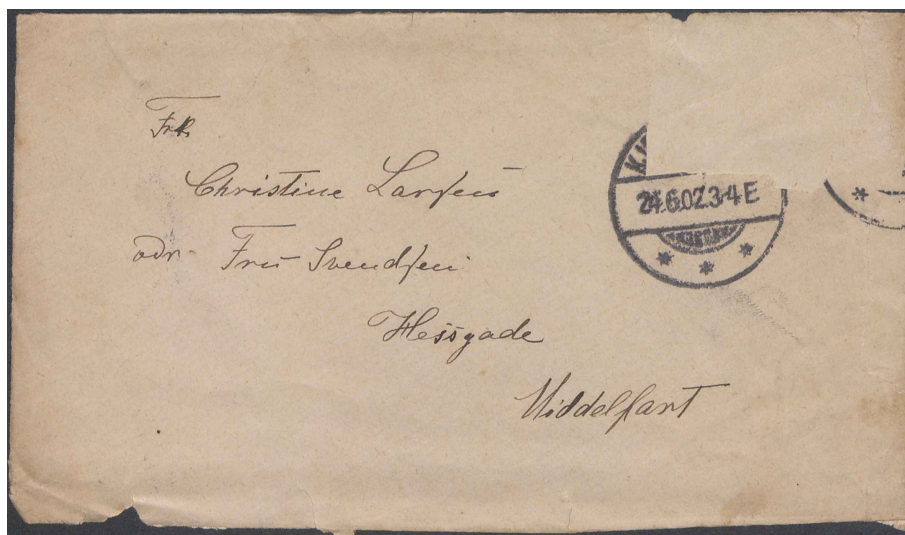 Frk.
Christine Larsen
adr. Fru Svendsen
Hessgade
Middelfart
24.6.02.3-4E